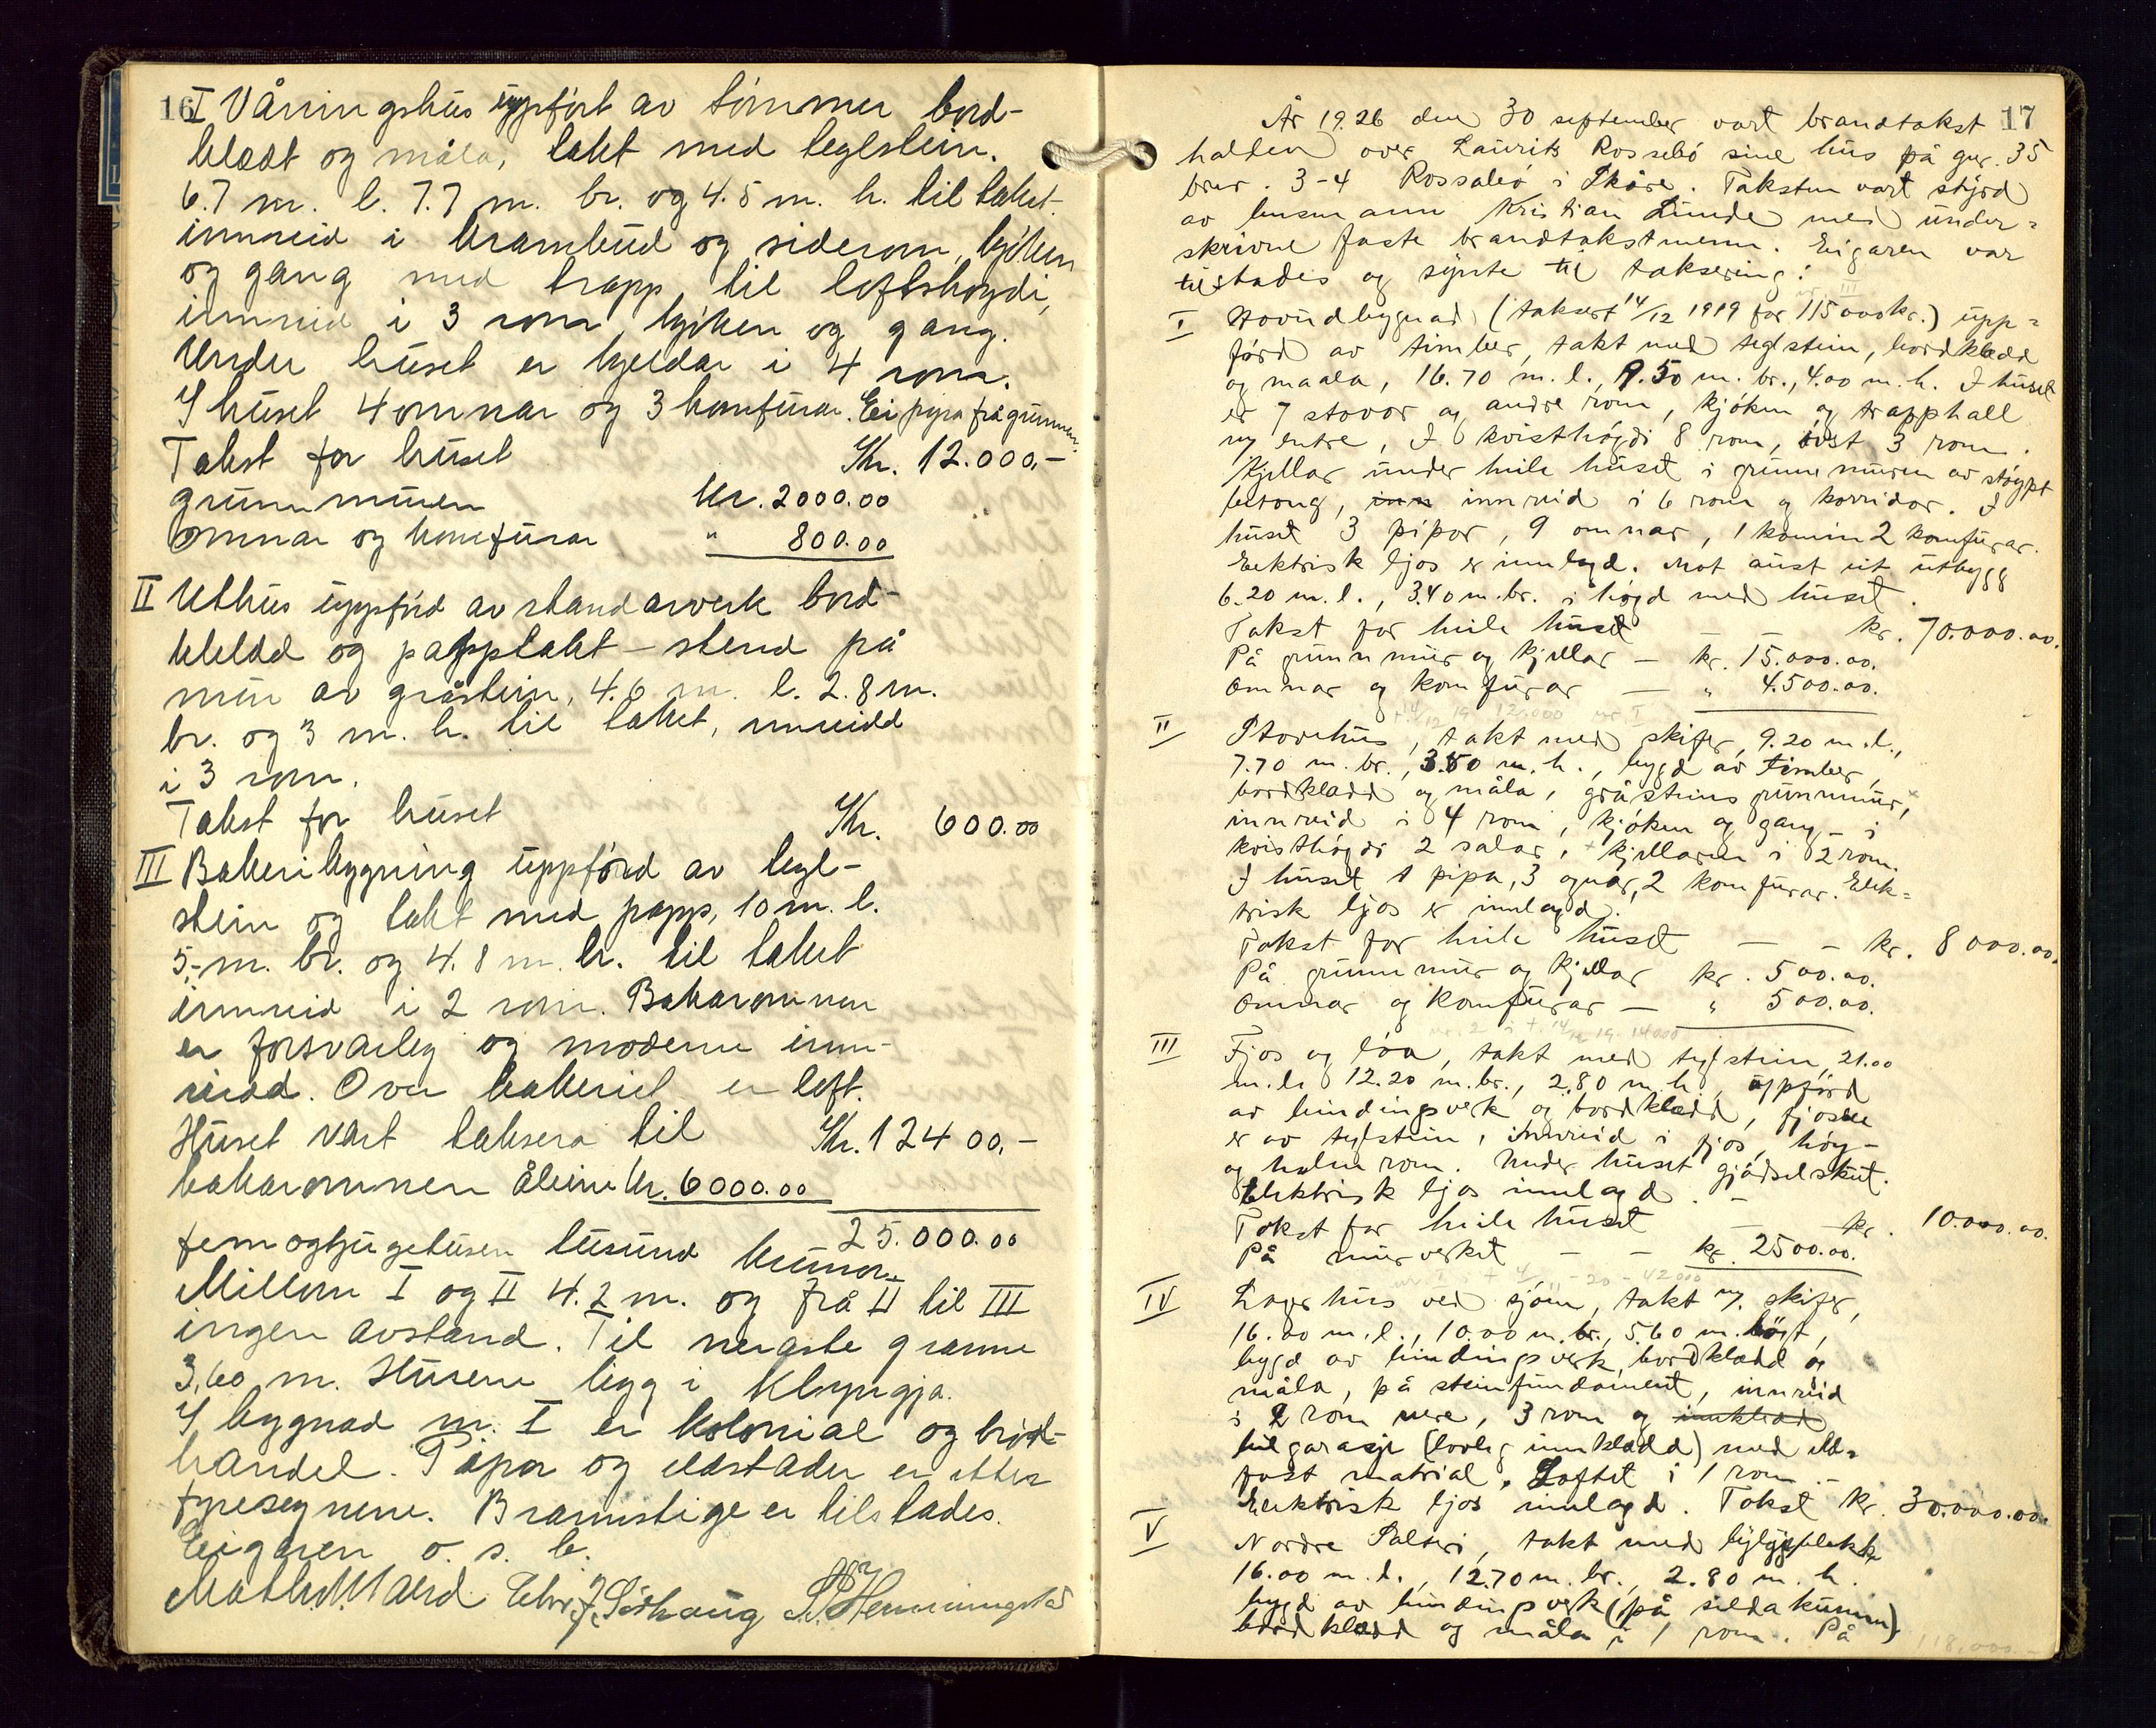 16
I Våningshus uppført av tømmer bord-
klædt og måla, takt med teglstein.
6.7 m. l. 7.7 m. br. og 4.5 m. h. til taket.
innreid i krambud og siderom, kjøken
og gang med trapp til loftshøgdi,
innreid i 3 rom, kjøken og gang.
Under huset er kjeldar i 4 rom.
I huset 4 omnar og 3 komfurar. Ei pipa frå grunnen.
Takst for huset Kr. 12.000,-
grunnmuren kr. 2000.00
Omnar og komfurar " 800.00
II Uthus uppførd av standarverk bord-
kledd og papptakt - stend på
mur av gråstein, 4.6 m. l. 2.8 m.
br. og 3 m. h. til taket, innreidd
i 3 rom.
Takst for huset Kr. 600.00
III Bakeribygning uppførd av tegl-
stein og takt med papp, 10 m. l.
5,- m. br. og 4.8 m. h. til taket
innreid i 2 rom. Bakaromnen
er forsvarleg og moderne inn-
reidd. Over bakeriet er loft.
Huset vart taksera til Kr. 12400,-
bakaromnen åleine kr. 6000.00
25.000.00
femogtjugetusen tusund krunor.
Millom I og II 4.2 m. og frå II til III
ingen avstand. Til neraste granne
3,60 m. Husene ligg i klyngja.
I bygnad nr. I er kolonial og brød-
handel. Pipor og eldstader er etter
fyresegnene. Brannstige er tilstades.
Eigaren o. s. b.
Mathi M Waerd Chr. J. Sørhaug S. Hemmingstad
17
År 1926 den 30 september vart brandtakst
halden over Laurits Rossebø sine hus på gnr. 35
bnr. 3-4 Rossabø i Skåre. Taksten vart styrd
av lensmann Kristian Lunde med under=
skrivne faste brandtakstmenn. Eigaren var
tilstades og synte til taksering:
I Hovudbygnad (taksert 14/12 1919 for 115000 kr.) upp=
førd av timber, takt med teglstein, bordklædd
og maala, 16.70 m. l., 9.50 m. br., 4.00 m. h. I huset
er 7 stovor og andre rom, kjøken og trapphall
og entre, I kvisthøgdi 8 rom, øvst 3 rom.
Kjellar under heile huset i grunnmuren av støypt
betong, inn innreid i 6 rom og korridor. I
huset 3 pipor, 9 omnar, 1 kamin 2 komfurar.
Elektrisk ljos er innlagd. Mot aust eit utbygg
6.20 m. l., 3.40 m. br. i høgd med huset.
Takst for heile huset — — kr. 70.000.00.
På grunnmur og kjellar — kr. 15.000.00.
Omnar og komfurar — " 4.500.00.
II Stovehus, takt med skifer, 9.20 m. l.,
7.70 m. br., 3.50 m. h., bygd av timber,
bordkladd og måla, gråsteins grunnmur,
innreid i 4 rom, kjøken og gang - i
kvisthøgdi 2 salar, kjellaren i 2 rom.
I huset 1 pipa, 3 ognar, 2 komfurar. Elek=
trisk ljos er innlagd.
Takst for heile huset — - kr. 8000.00.
På grunnmur og kjellar kr. 500.00.
Omnar og komfurar — " 500.00.
III Fjos og løa, takt med teglstein, 21.00
m. l. 12.20 m. br., 2.80 m. h., uppførd
av bindingsverk og bordklædd, fjosen
er av teglstein, innreid i fjos, høy-
og halmrom. Under huset gjødselskut.
Elektrisk ljos innlagd. -
Takst for heile huset — kr. 10.000.00.
På murverket — - kr. 2500.00.
IV Lagerhus ved sjøen, takt m. skifer,
16.00 m. l., 10.00 m. br., 5.60 m. høgt,
bygd av bindingsverk, bordklædd og
måla, på steinfundament, innreid
i 2 rom nere, 3 rom og innklædd
bilgarasje (lovleg innklædd) med eld=
fast matrial. Loftet i 1 rom. -
Elektrisk ljos innlagd. Takst kr. 30.000.00.
V Nordre Salteri, takt med bylgjeblekk
16.00 m. l., 12.70 m. br., 2.80 m. h.
bygd av bindingsverk (på sildakummen)
bordklædd og måla i 1 rom. På
118,000.-